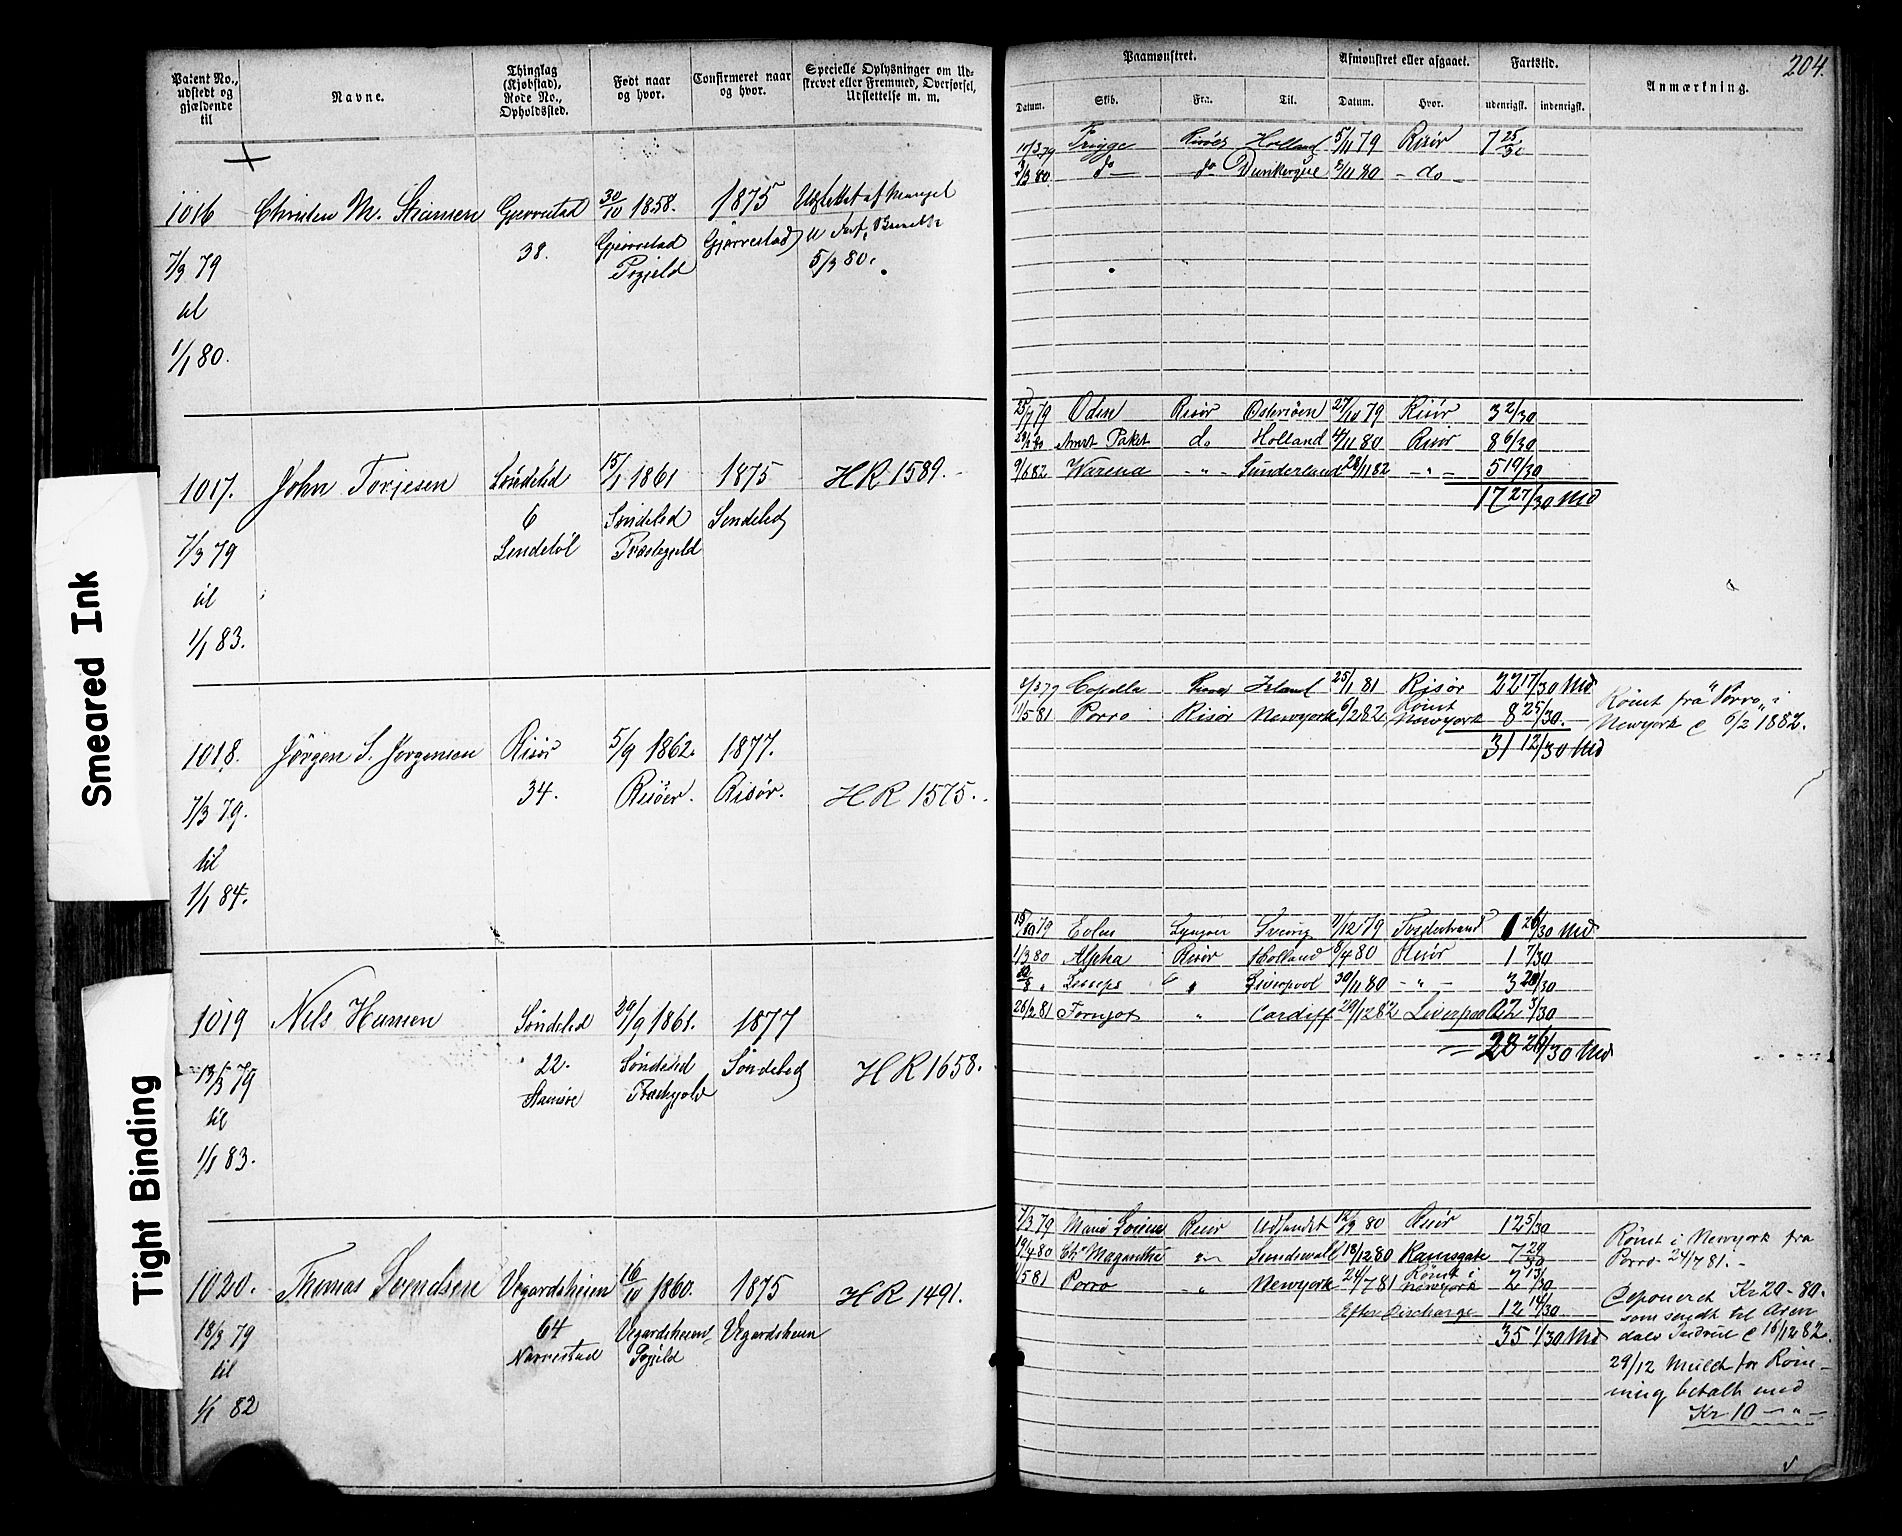 204.
Patent No., udstedt og gjældende til
Navne.
Thinglag (Kjøbstad), Rode No., Opholdssted.
Født naar og hvor.
Confirmeret naar og hvor.
Specielle Oplysninger om Udskrevet eller Fremmed, Overførsel, Udslettelse m. m.
Paamønstret.
Afmønstret eller afgaaet.
Fartstid.
Anmærkning.
Datum. Skib. Fra. Til. Datum. Hvor. udenrigsk. indenrigsk.
1016 Christen M. Gjerrestad 30/10 1858. 1875
38. Gjerrestad Gjerrestad
Prgjeld
5/3 80.
7/3 79
til
1/1 80.
Risør Holland 5/11 79 Risør 7 25/30
do do Dunkerque 5/11 80 - do -
1017. John Torjesen Søndeled 15/1 1861 1875 HR 1589.
6 Søndeled Søndeled
Præstegjeld
7/3 79
til
1/1 83.
25/7 79 Oden Risør Østersøen 27/10 79 Risør 3 2/30
do Holland 4/11 80 Risør 8 6/30
9/6 82 Sunderland 28/11 82 - " - 5 19/30
17 27/30 Md
1018. Jørgen S. Jørgensen Risør 5/9 1862. 1877.
34. Risøer. Risør. HR 1575.
7/3 79.
til
1/1 84.
Capella Irland 25/1 81 Risør 22 17/30 Md
11/5 81 Porro Risør Newyork 6/2 82 Rømt Newyork 8 25/30
31 12/30 Md
Rømt fra "Porro" i
Newyork 6/2 1882.
1019 Nils Hansen Søndeled 29/9 1861. 1877
22. Søndeled Søndeled HR 1658.
Præstegjeld
13/3 79
til
1/1 83.
15/10 79 Eolus Lyngøer 7/12 79 Tvedestrand 1 26/30 Md
1/3 80 Alpha Risør Holland 8/4 80 Risør 1 7/30
Liverpool 30/11 80 - " - 3 20/30
26/2 81 Fornjot " Cardiff 29/12 82 Liverpool
Md
1020. Thomas Svendsen Vegardsheien 16/10 1860. 1875 HR 1491.
64 Vegardsheien Vegardsheien
Navrestad Prgjeld
18/3 79
til
1/1 82
Risør Udlandet 12/3 80 Risør 12 5/30
19/4 80 Sundsvald 18/12 80 Ramsgate 7 20/30
11/5 81 Porro - " Newyork 24/7 81 Rømt i Newyork 2 13/30
Efter Discharge 12 14/30
35 1/30 Md
Rømt i Newyork fra
Porro 24/7 81.
Deponeret Kr 20-80.
som sendt til Arendals Indrul 16/12 82.
29/12 Mulct for Rømning betalt med
Kr 10 - " -
Smeared Ink
Tight Binding